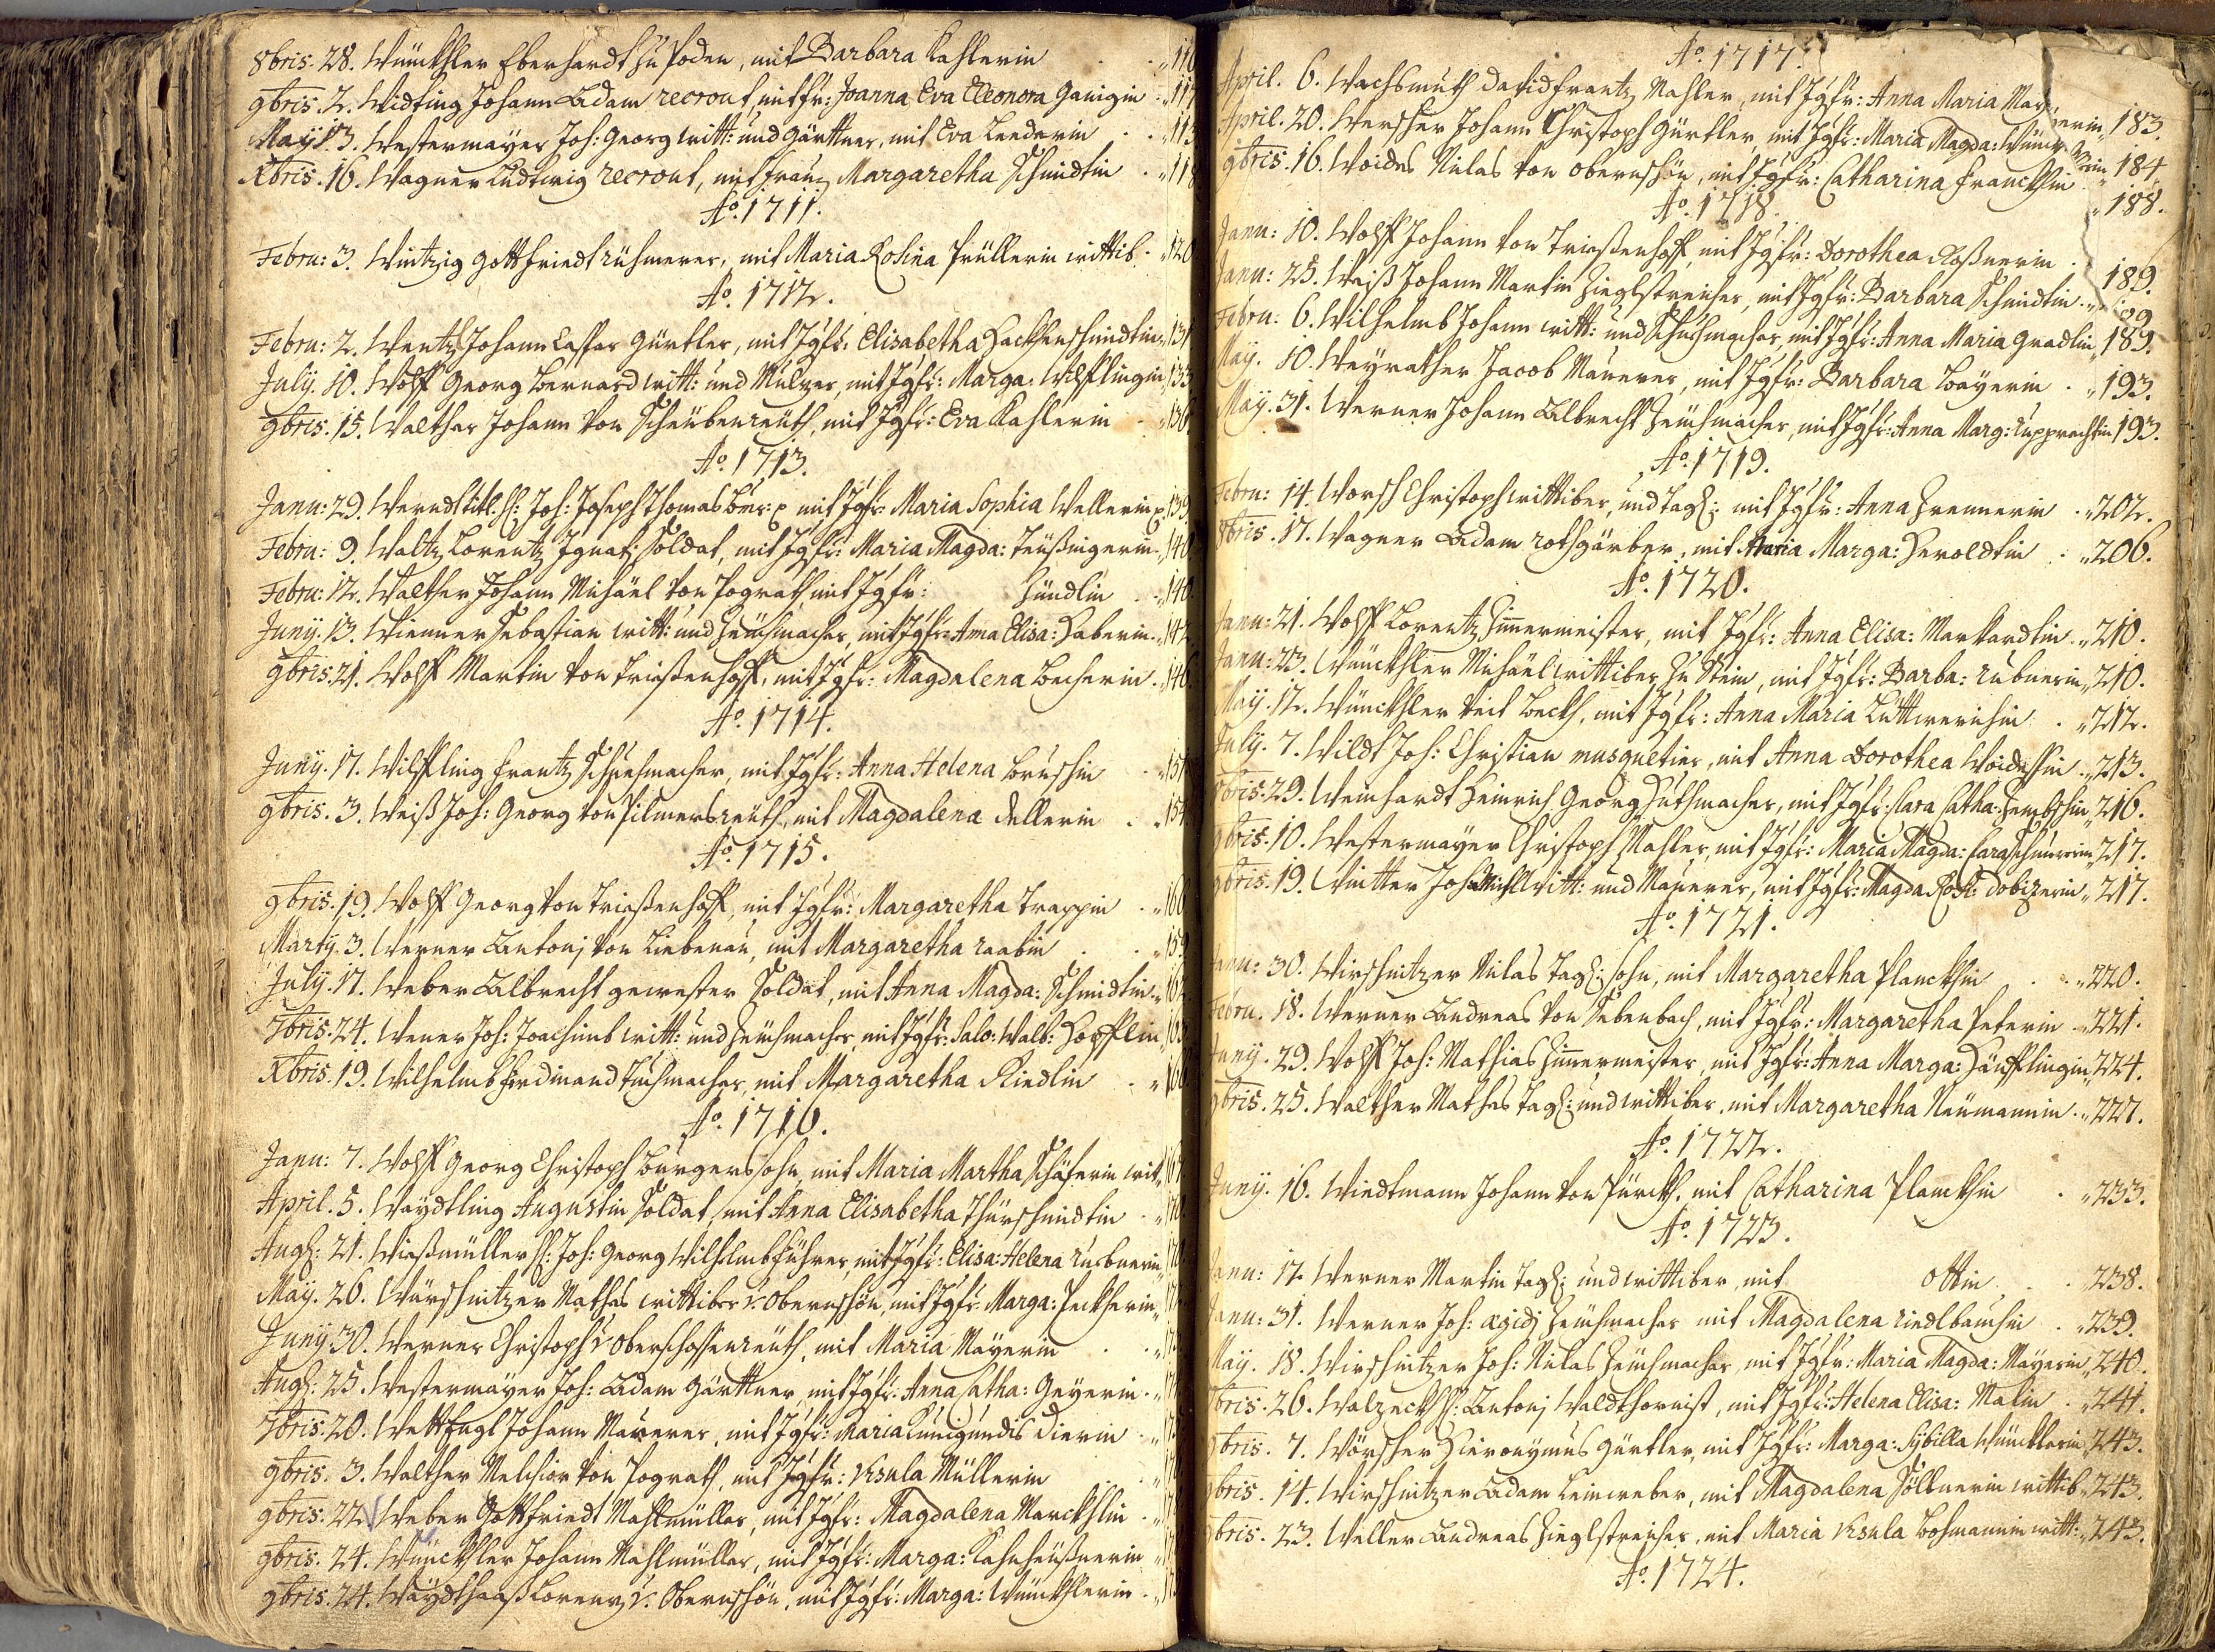 8bris. 28. Wünckhler Eberhardt zu Poden, mit Barbara Kahlerin . . " 116
9bris. 2. Widting Johann Adam recrout, mit fr: Joanna Eva Eleonora Ganigin . " 117
May 13. Westermayer Joh: Georg witt: und Gärttner, mit Eva Lenderin . . " 113
Xbris. 16. Wagner Ludtwig recrout, mit frau Margaretha Schmidtin . " 118
Ao. 1711.
Febru: 3. Wintzig Gottfriedt mit Maria Rosina Prüllerin wittib . " 120
Ao. 1712.
Febru: 2. Wentzl Johann Casper Gürtler, mit Jgfr: Elisabetha Hackhenschmidtin " 131
July. 10. Wolff Georg Bernard witt: und Mulzer, mit Jgfr: Marga: Wilfflingin " 133
9bris. 15. Walther Johann von Scheibenreuth, mit Jgfr: Eva Kahlerin . " 136
Ao. 1713.
Janu: 29. Werndl titl. H: Joh: Joseph Thomas mit Jgfr: Maria Sophia Wellerin p 139
Febru: 9. Waltz Lorentz Ignati: Soldat, mit Jgfr: Maria Magda: Teüßnigerin . " 140
Febru: 12. Walther Johann Michäel von Pograth, mit Jgfr: Hündlin . . " 140
Juny. 13. Wimmer Sebastian witt: und Zeuchmacher, mit Jgfr: Anna Elisa: Haberin . " 142
9bris. 21. Wolff Martin von Triesenhoff, mit Jgfr: Magdalena Becherin . " 146
Ao. 1714.
Juny. 17. Wilffling Frantz Schuehmacher, mit Jgfr: Anna Helena Bruschin . " 151
9bris. 3. Weiß Joh: Georg von Pilmersreuth, mit Magdalena Dellerin . " 154
Ao. 1715.
9bris. 19. Wolff Georg von Triesenhoff, mit Jgfr: Margaretha Trappin . " 160
Marty. 3. Werner Antoni von Liebenau, mit Margaretha Raabin . . " 159
July. 17. Weber Albrecht gewester Soldat, mit Anna Magda: Schmidtin . " 162
7bris. 24. Wener Joh: Joachimb witt: und Zeuchmacher, mit Jgfr: Salo: Walb: Höpfflin " 163
Xbris. 19. Wilhelmb Ferdinand Tuchmacher, mit Margaretha Riedlin . " 166
Ao. 1716.
Janu: 7. Wolff Georg Christoph Burgerssohn, mit Maria Martha Schäferin wit. " 167
April. 5. Waydtling Augustin Soldat, mit Anna Elisabetha Thürschmidtin . " 170
Aug: 21. Wießmüller H: Joh: Georg Wilhelmb führer, mit Jgfr: Elisa: Helena Rubnerin
May. 26. Würschnitzer Mathes wittiber v. Obernschön, mit Jgfr: Marga: Peckherin . "
Juny. 30. Werner Christoph v. Oberschossenreuth, mit Maria Mayerin . . "
Aug: 25. Westermayer Joh: Adam Gärttner, mit Jgfr: Anna Catha: Geyerin . "
7bris. 20. Wettengl Johann Maurer, mit Jgfr: Maria Cunigundis Dierin . "
9bris. 3. Walther Melchior von Pograth, mit Jgfr: Ursula Müllerin . . "
9bris. 22. Weber Gottfriedt Mahlmüller, mit Jgfr: Magdalena Marckhlin . "
9bris. 24. Wünckhler Johann Mahlmüller, mit Jgfr: Marga: Kahheüßnerin "
9bris. 24. Waydthaaß Lorenz v. Obernschön, mit Jgfr: Marga: Wünckhlerin . "
Ao. 1717.
April. 6. Wachsmuth David Frantz Mahler, mit Jgfr: Anna Maria May erin " 183.
April. 20. Werscher Johann Christoph Gürtler, mit Jgfr: Maria Magda: Wünck " 184.
9bris. 16. Woides Niclas von Obernschön, mit Jgfr: Catharina Franckhin " 188.
Ao. 1718.
Janu: 10. Wolff Johann von Triesenhoff, mit Jgfr: Dorothea Roßnerin . 189.
Janu: 25. Weiß Johann Martin Zieglstreicher, mit Jgfr: Barbara Schmidtin . " 189
Febru: 6. Wilhelmb Johann witt: und Schuhmacher, mit Jgfr: Anna Maria Gradlin " 189.
May. 10. Weyrather Jacob Maurer, mit Jgfr: Barbara Bayerin . " 193.
May. 31. Werner Johann Albrecht Zeuchmacher, mit Jgfr: Anna Marg: Rupprechtin 193.
Ao. 1719.
Febru: 14. Worsch Christoph wittiber, und Tagl: mit Jgfr: Anna Zrennerin . " 202.
8bris. 17. Wagner Adam Rothgärber, mit Maria Marga: Heroldtin . " 206.
Ao. 1720.
Janu: 21. Wolff Lorentz Zimmermeister, mit Jgfr: Anna Elisa: Markardtin . " 210.
Janu: 23. Wünckhler Michäel wittiber zu Stein, mit Jgfr: Barba: Rubnerin " 210.
May. 12. Wünckhler Veit Beckh, mit Jgfr: Anna Maria Luttwerichin . " 212.
July. 7. Wildt Joh: Christian Musquetier, mit Anna Dorothea Woidessin . " 213.
8bris. 29. Weinhardt Heinrich Georg Huthmacher, mit Jgfr: Clara Catha: Zembschin " 216.
9bris. 10. Westermayer Christoph Mahler, mit Jgfr: Maria Magda: " 217.
9bris. 19. Winter Joh: Michl witt: und Maurer, mit Jgfr: Magda Rosi: Dobizerin " 217.
Ao. 1721.
Janu: 30. Wirschnitzer Niclas Tagl: sohn, mit Margaretha Planckhin . . " 220.
Febru. 18. Werner Andreas von Sebenbach, mit Jgfr: Margaretha Peterin . " 221.
Juny. 29. Wolff Joh: Mathias Zimmermeister, mit Jgfr: Anna Marga: Häufflingin " 224.
9bris. 25. Walther Mathes Tagl: und wittiber, mit Margaretha Neümannin . " 227.
Ao. 1722.
Juny. 16. Wiedtmann Johann von Pürckh, mit Catharina Planckhin . " 233.
Ao. 1723.
Janu: 17. Werner Martin Tagl: und wittiber, mit Ottin . . " 238.
Janu: 31. Werner Joh: Ægidj Zeuchmacher mit Magdalena Riedlbauchin . " 239.
May. 18. Wirschnitzer Joh: Niclas Zeuchmacher, mit Jgfr: Maria Magda: Mayerin " 240.
7bris. 26. Walzeckh H: Antonj Waldthornist, mit Jgfr: Helena Elisa: Malin . " 241.
9bris. 7. Wörscher Hieronymus Gürtler, mit Jgfr: Marga: Sybilla Wüncklerin " 243.
9bris. 14. Wirschnitzer Adam Leinweber, mit Magdalena Söllnerin wittib " 243.
9bris. 23. Weller Andreas Zieglstreicher, mit Maria Ursula Bohmannin witt: " 243.
Ao. 1724.